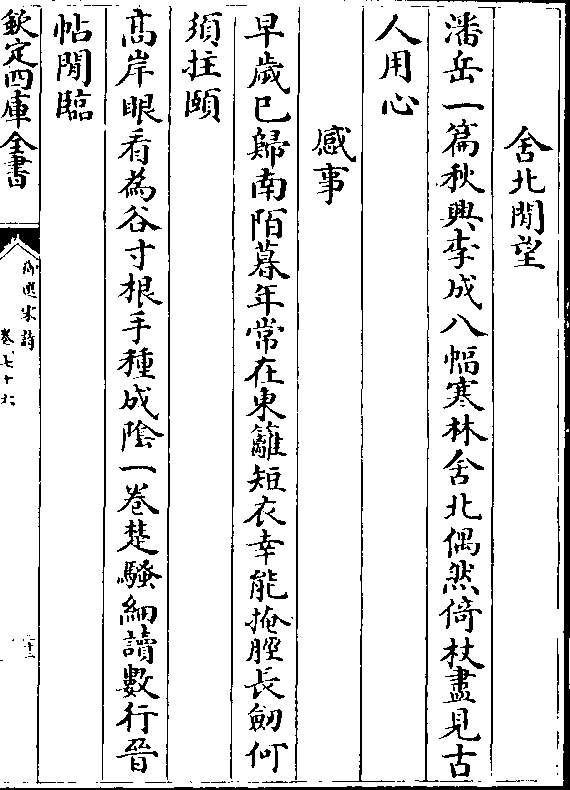 舍北閒望
潘岳一篇秋興李成八幅寒林舍北偶然倚杖盡見古
人用心
感事
早歲已歸南陌暮年常在東籬短衣幸能掩脛長劒何
須拄頤
髙岸眼看為谷寸根手種成陰一卷楚騷細讀數行晉
帖閒臨
欽定四庫全書
御選宋詩
卷七十六